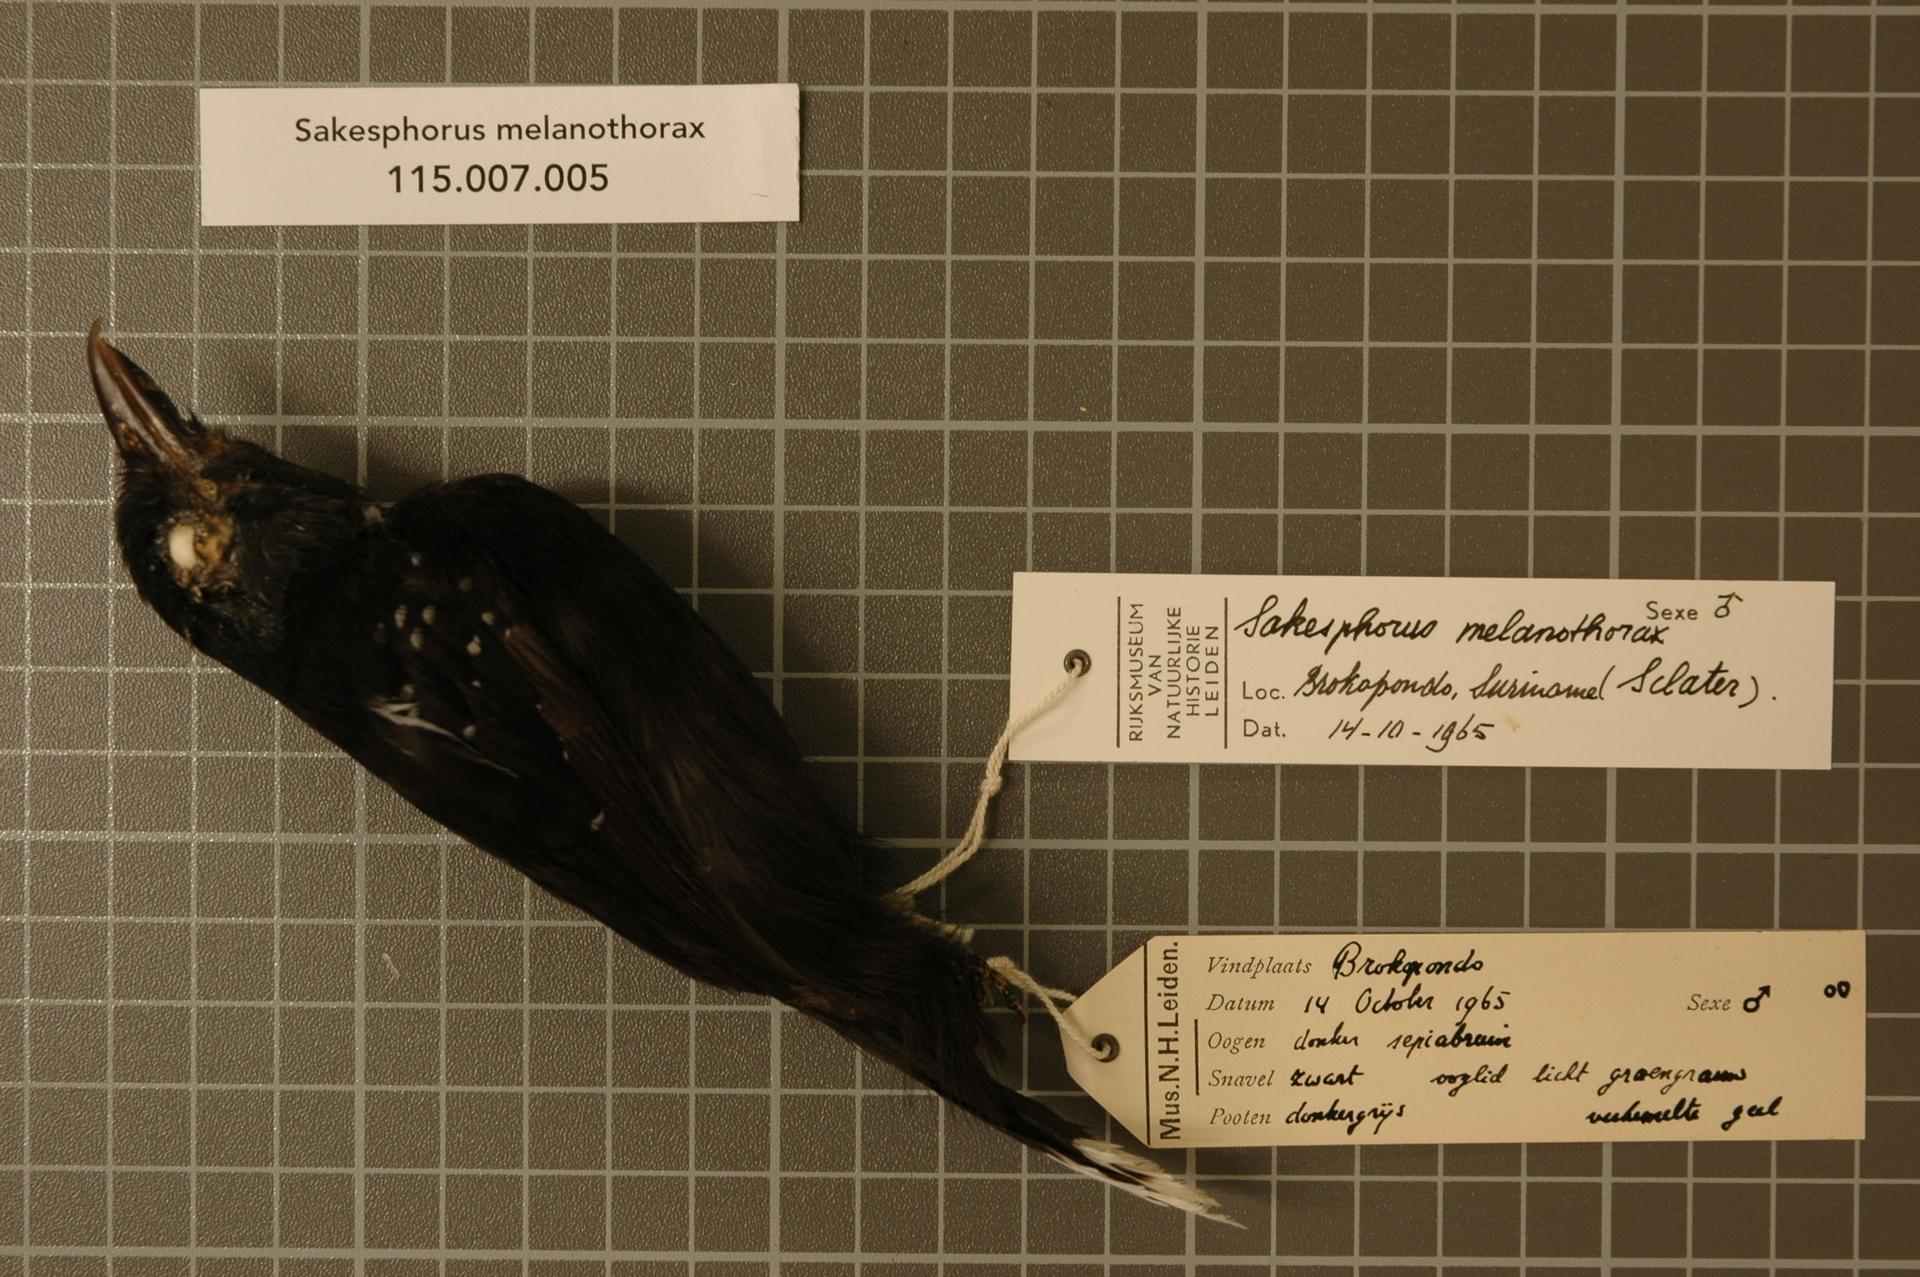 Sakesphorus melanothorax
115.007.005
RIJKSMUSEUM
VAN
NATUURLIJKE
HISTORIE
LEIDEN
Sexe ♂
Sakesphorus melanothorax
Loc. Brokopondo, Suriname (Sclater).
Dat. 14-10-1965
Mus.N.H.Leiden.
Vindplaats Brokopondo
Datum 14 October 1965 Sexe ♂
Oogen donker sepiabruin
Snavel zwart ooglid licht groengrauw
Pooten donkergrijs verhemelte geel